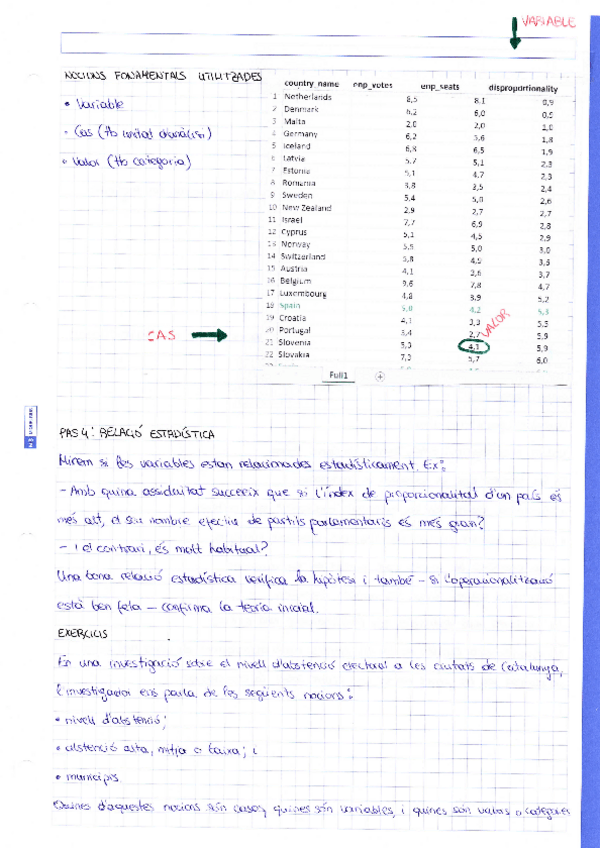 VARIABLE
NOCIONS FONAMENTALS UTILITZADES
• Variable
• Cas (tb unitat d'anàlisi)
• Valor (tb categoria)
country_name enp_votes enp_seats disproportionality
1 Netherlands 8,5 8,1 0,9
2 Denmark 6,2 6,0 0,9
3 Malta 2,0 2,0 1,0
4 Germany 6,2 5,6 1,8
5 Iceland 6,8 6,5 1,9
6 Latvia 5,7 5,1 2,3
7 Estonia 5,1 4,7 2,3
8 Romania 3,8 3,5 2,4
9 Sweden 5,4 5,0 2,6
10 New Zealand 2,9 2,7 2,7
11 Israel 7,7 6,9 2,8
12 Cyprus 5,1 4,5 2,9
13 Norway 5,5 5,0 3,0
14 Switzerland 5,8 4,9 3,3
15 Austria 4,1 3,6 3,7
16 Belgium 9,6 7,8 4,7
17 Luxembourg 4,8 3,9 5,2
18 Spain 5,0 4,2 5,3
19 Croatia 4,1 3,3 5,5
20 Portugal 3,4 2,7 5,9
21 Slovenia 5,3 4,3 5,9
22 Slovakia 7,3 5,7 6,0
VALOR
CAS
Full1
PAS 4: RELACIÓ ESTADÍSTICA
Mirem si les variables estan relacionades estadísticament. Ex:
- Amb quina assiduitat succeeix que si l'índex de proporcionalitat d'un país és
més alt, el seu nombre efectiu de partits parlamentaris és més gran?
- I el contrari, és molt habitual?
Una bona relació estadística verifica la hipòtesi i també - si l'operacionalització
està ben feta - confirma la teoria inicial.
EXERCICIS
En una investigació sobre el nivell d'abstenció electoral a les ciutats de Catalunya,
l'investigador ens parla de les següents nocions:
• nivell d'abstenció;
• abstenció alta, mitja o baixa; i
• municipis
Quines d'aquestes nocions són casos, quines són variables, i quines són valors o categories